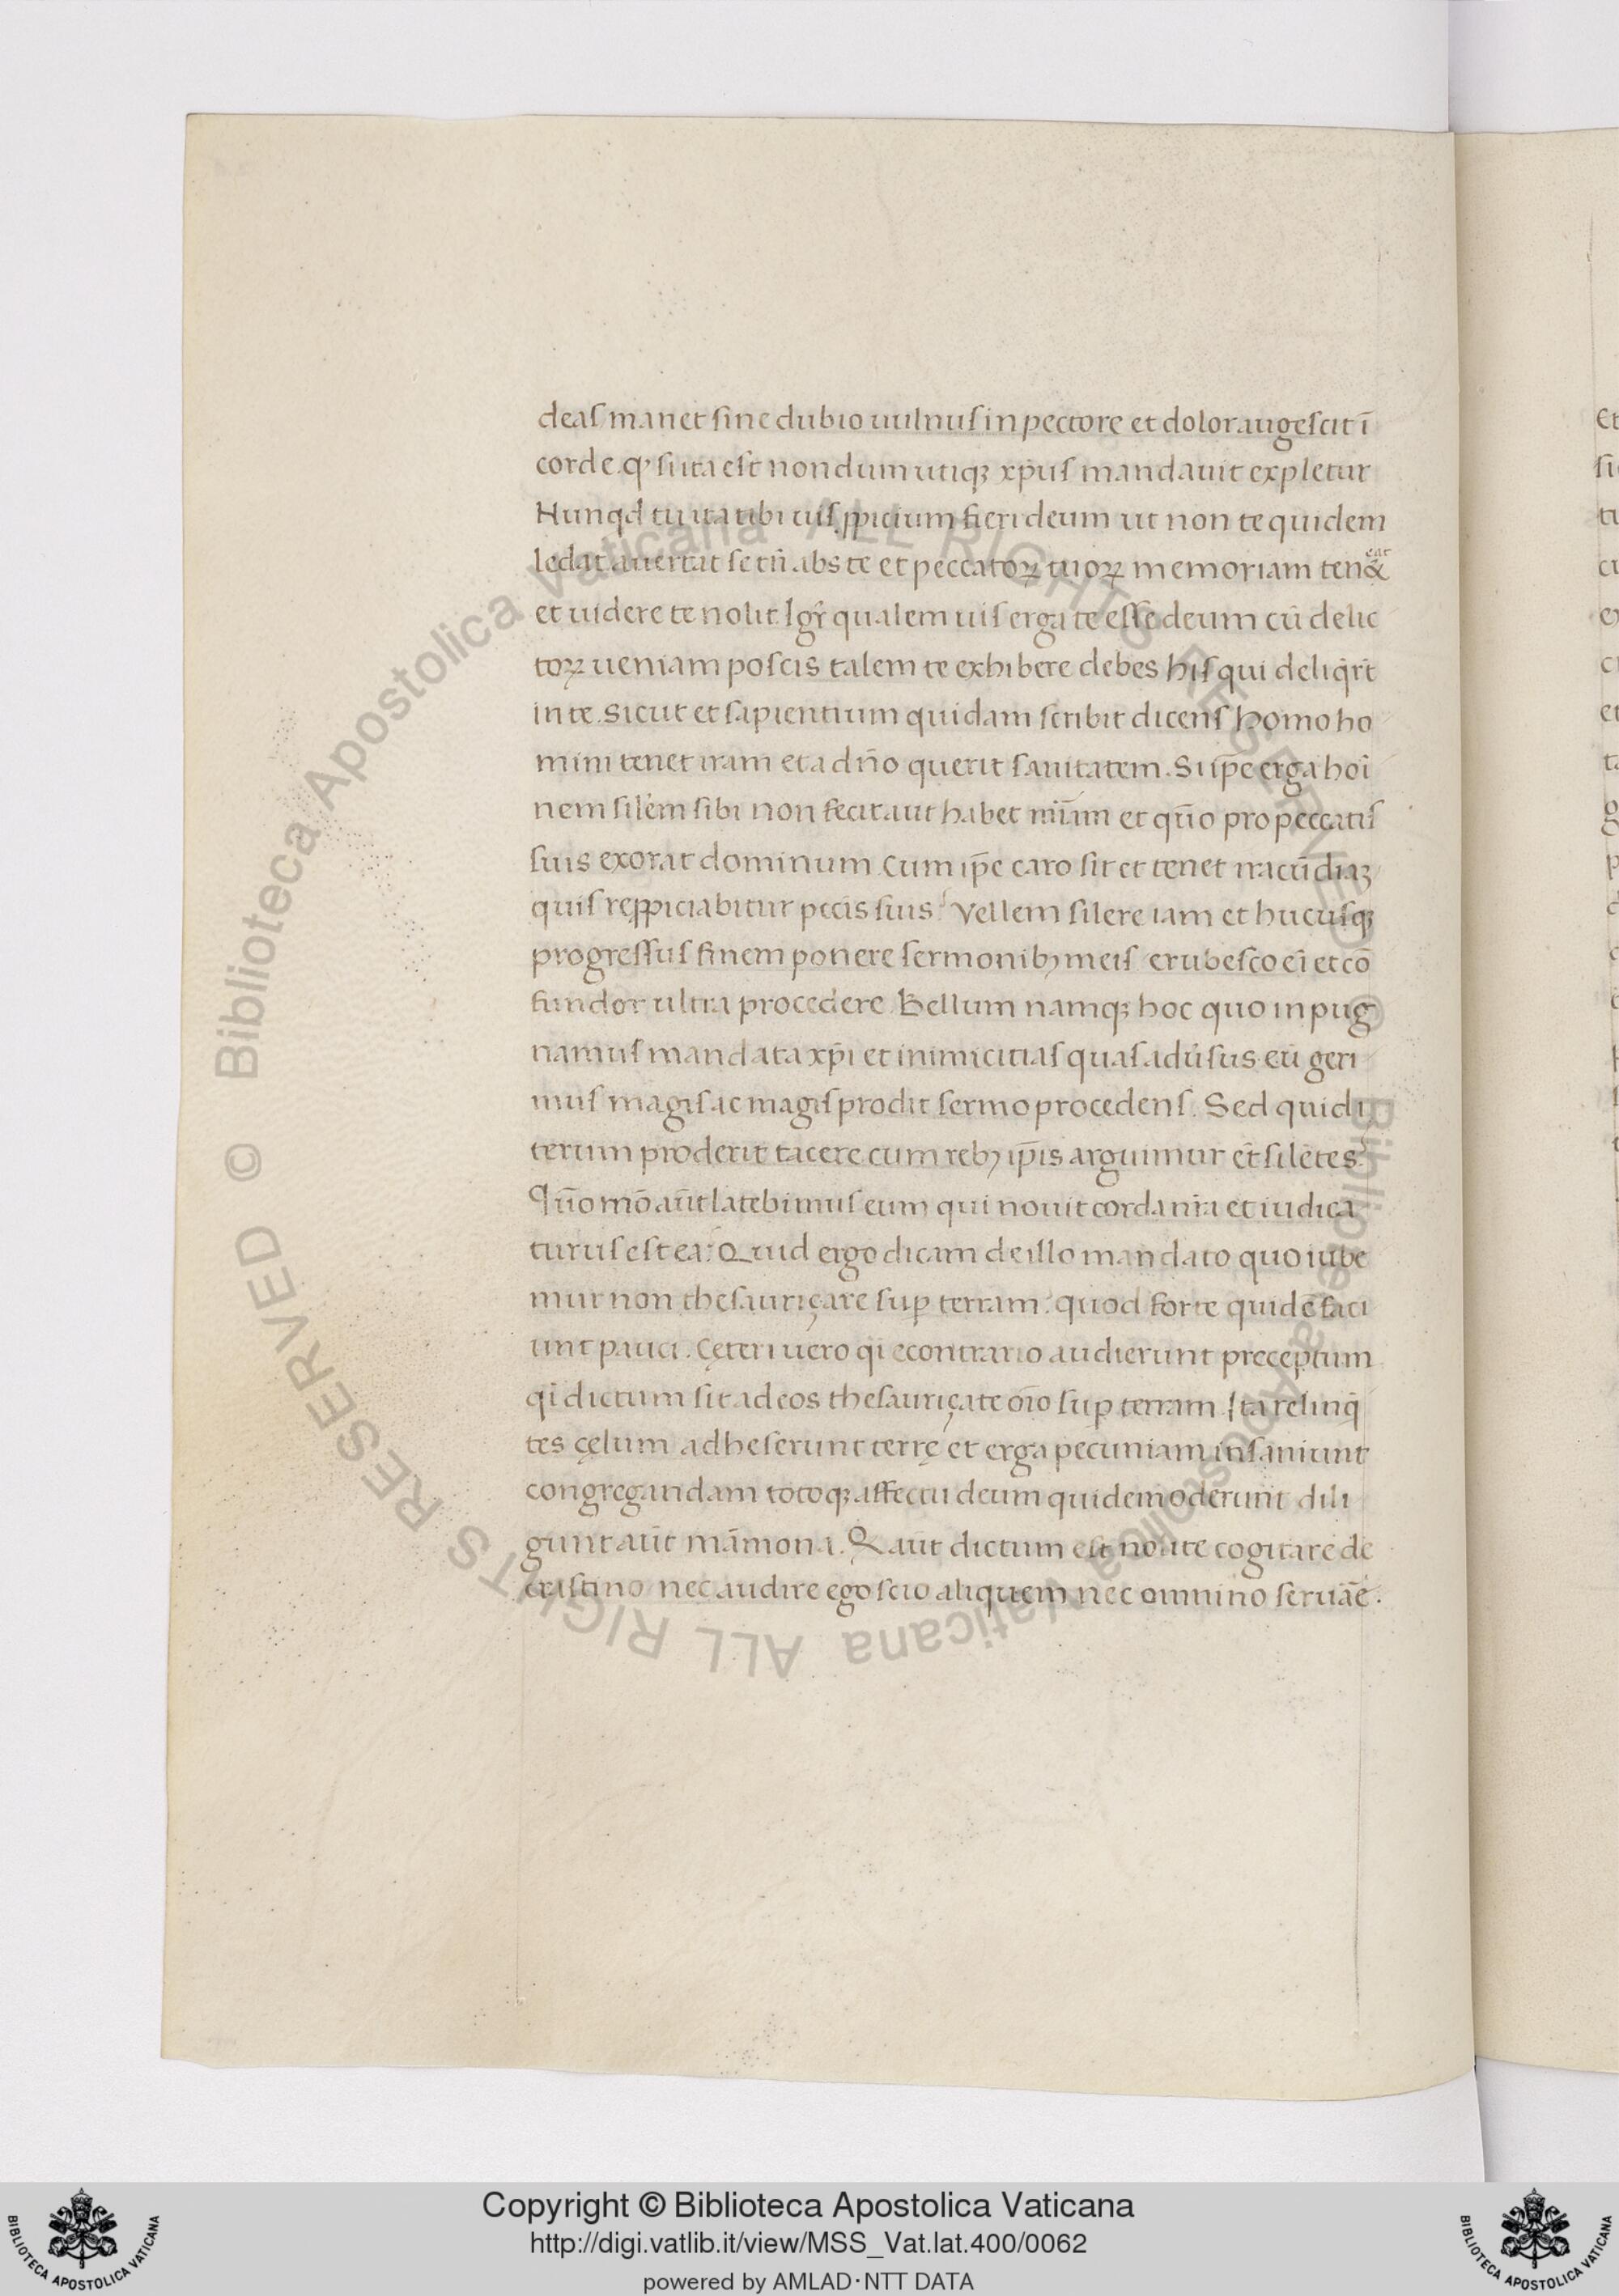 deas manet sine dubio uulnus in pectore et dolor augescit ī
corde. qꝫ si ita est nondum utiqꝫ xp̄us mandauit expletur
Nunqd tu ita tibi uis ꝓpicium fieri deum ut non te quidem
ledat. auertat se tn̄ abs te et peccatoꝝ tuoꝝ memoriam ten&
eat
et uidere te nolit. Igr̄ qualem uis erga te esse deum cū delic
toꝝ ueniam poscis talem te exhibere debes his qui deliqr̄t
in te. Sicut et sapientium quidam scribit dicens homo ho
mini tenet iram et a dn̄o querit sanitatem. Si ip̄e erga hoī
nem silem̄ sibi non fecit aut habet mīam et qūo pro peccatis
suis exorat dominum. Cum ip̄e caro sit et tenet iracūdiaꝫ
quis reꝓpiciabitur pecc̄is suis? Vellem silere iam et hucusqꝫ
progressus finem ponere sermonibꝫ meis erubesco ei̅ et cō
fundor ultra procedere. Bellum namqꝫ hoc quo inpug
namus mandata xp̄i et inimicitias quas adūsus eū geri
mus magis ac magis prodit sermo procedens. Sed quid i
terum proderit tacere cum rebꝫ ip̄is arguimur et̄ silētes?
Qūo mō aūt latebimus eum qui nouit corda nr̄a et iudica
turus est ea? Quid ergo dicam de illo mandato quo iube
mur non thesauriçare suꝑ terram? quod forte quidē faci
unt pauci. Cęteri uero qi econtrario audierunt preceptum
qi dictum sit ad eos thesauriçate oīo suꝑ terram. Ita relinq̄
tes cęlum adheserunt terrę et erga pecuniam insaniunt
congregandam totoqꝫ affectu deum quidem oderunt dili
gunt aūt māmona. Q aūt dictum est nolite cogitare de
crastino nec audire ego scio aliquem nec omnino seruāe.
Copyright © Biblioteca Apostolica Vaticana
http://digi.vatlib.it/view/MSS_Vat.lat.400/0062
powered by AMLAD·NTT DATA
BIBLIOTECA APOSTOLICA VATICANA
BIBLIOTECA APOSTOLICA VATICANA
© Biblioteca Apostolica Vaticana ALL RIGHTS RESERVED
© Biblioteca Apostolica Vaticana ALL RIGHTS RESERVED